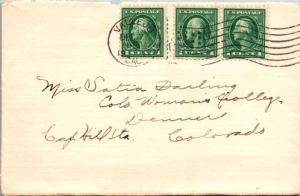 U.S. POSTAGE U.S. POSTAGE U.S. POSTAGE
CENT
Miss Satia Darling
Colo. Woman's College
Denver
Cap Hill Sta. Colorado